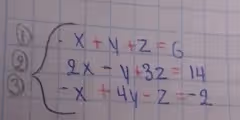 ① · x + y + z = 6
② 2x - y + 3z = 14
③ -x + 4y - z = -2